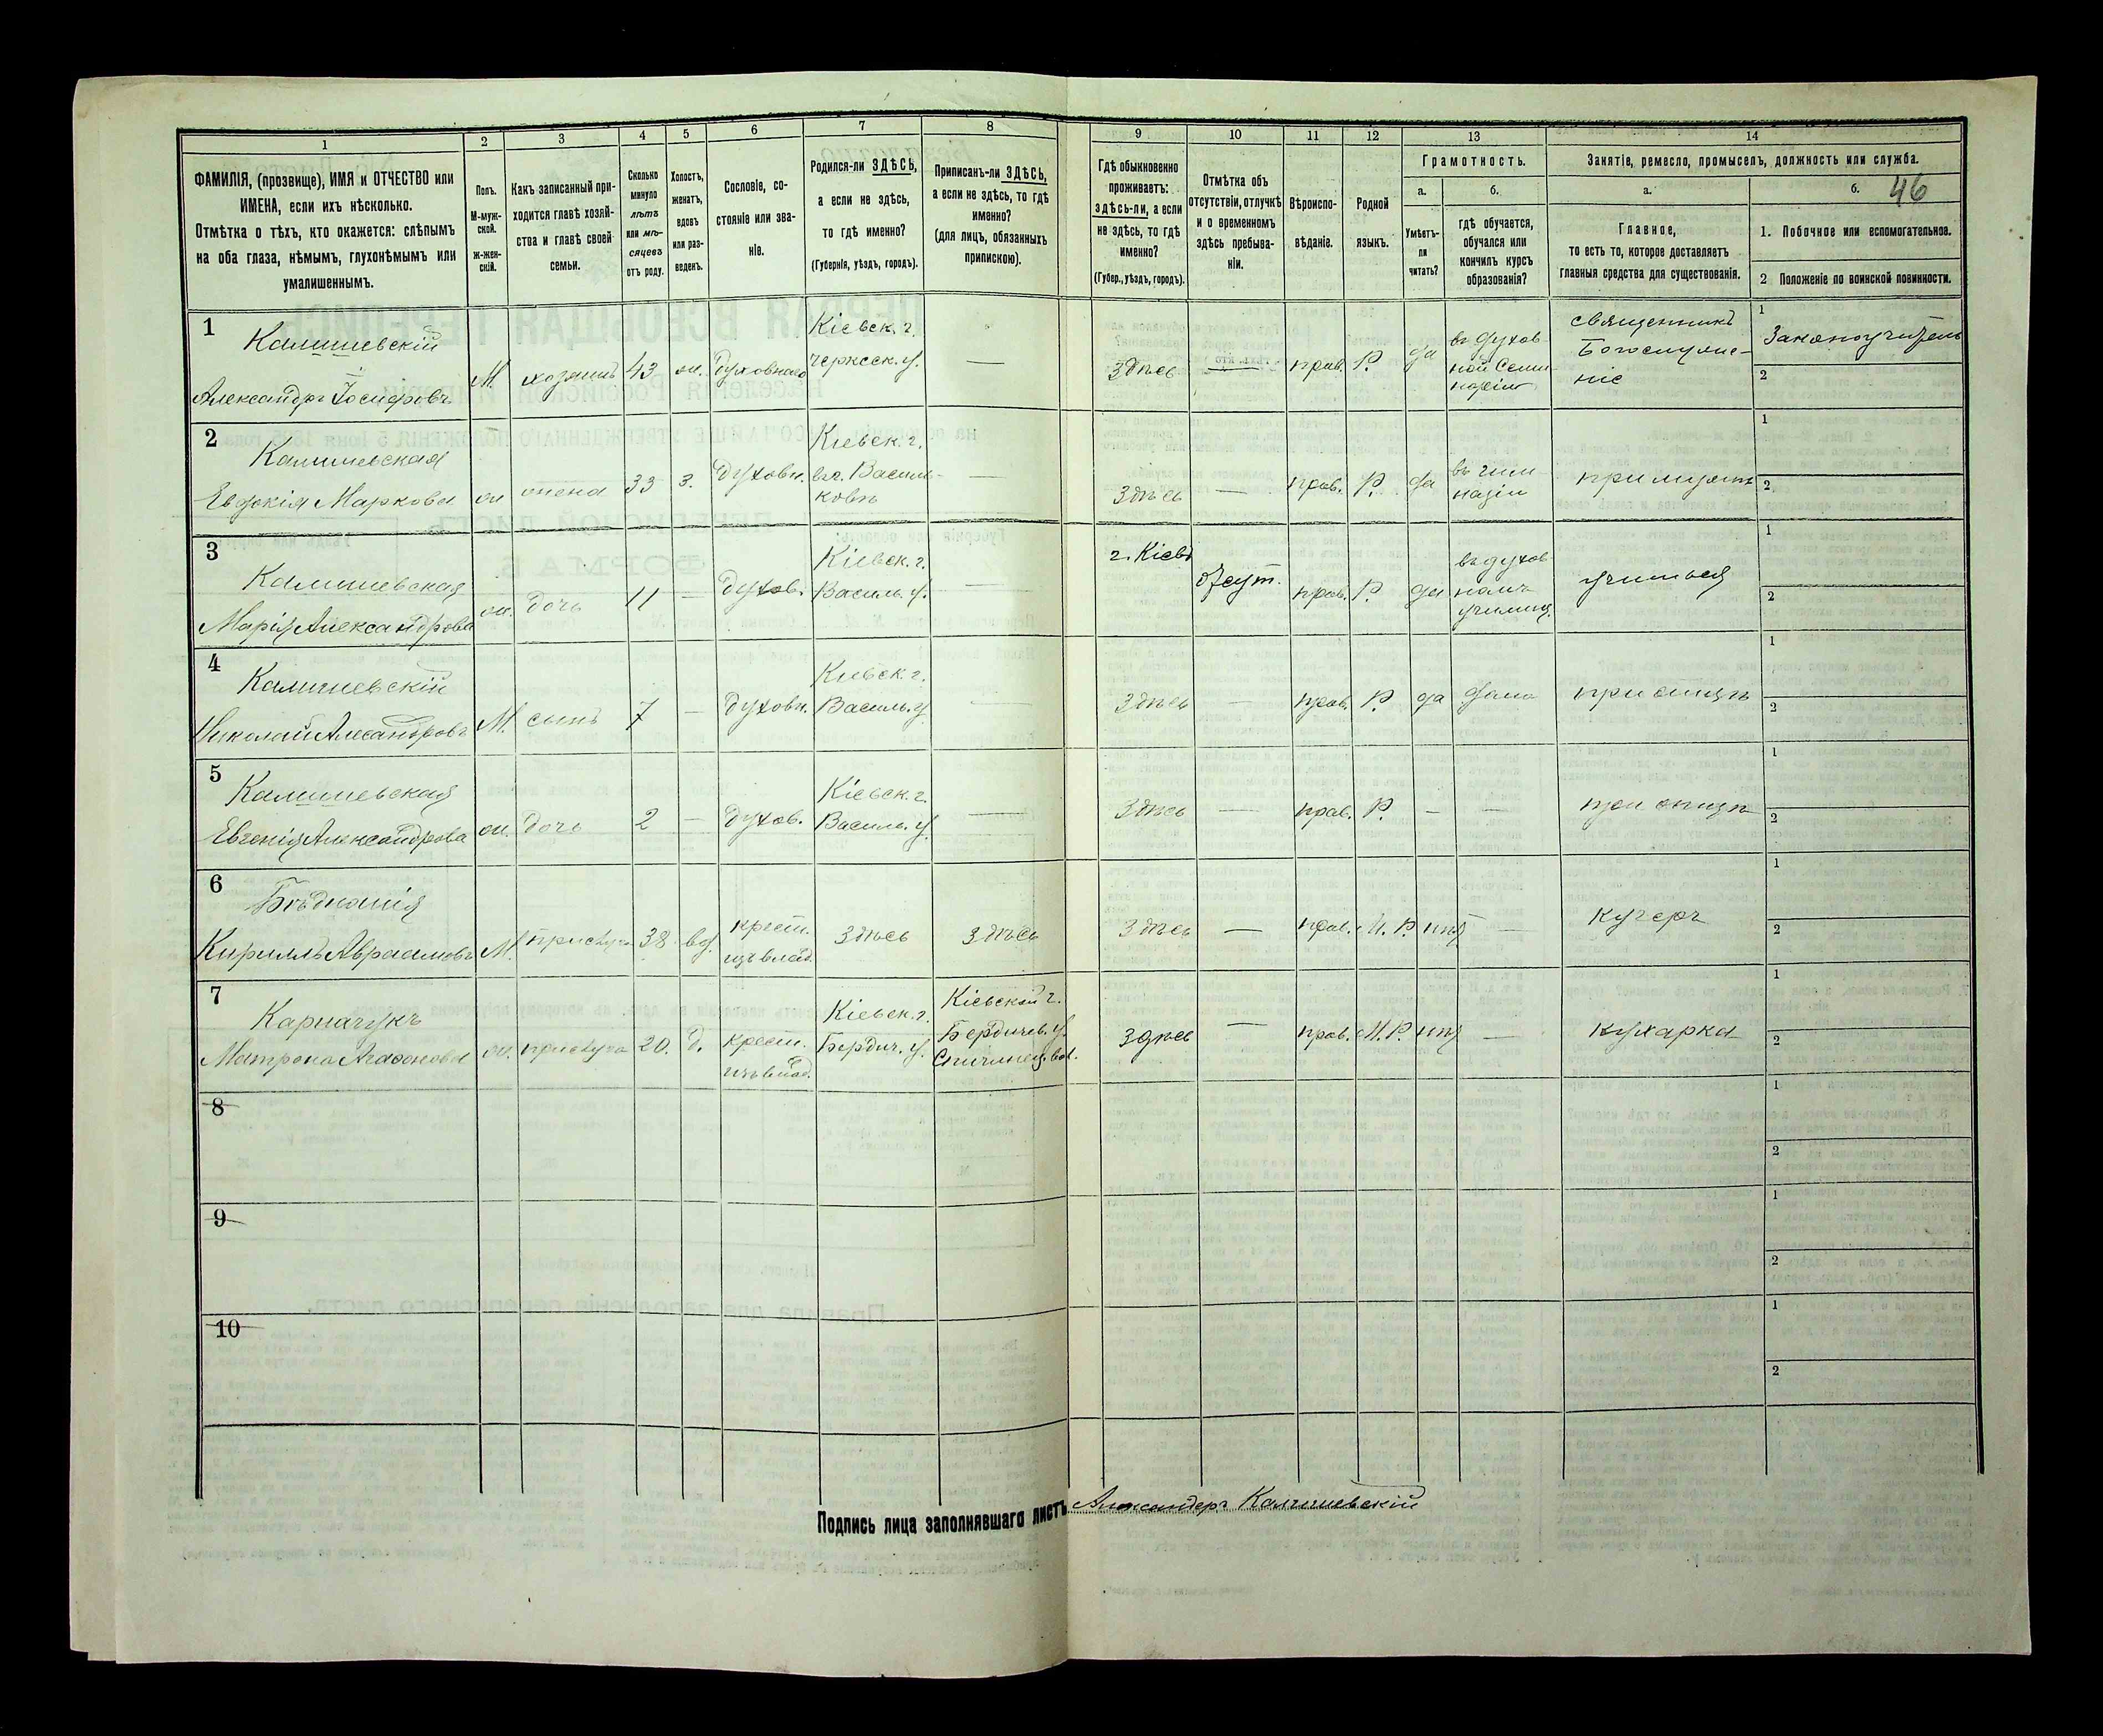 1
2
3
4
5
6
7
8
9
10
11
12
13
14
ФАМИЛІЯ, (прозвище), ИМЯ и ОТЧЕСТВО или
ИМЕНА, если ихъ нѣсколько.
Отмѣтка о тѣхъ, кто окажется: слѣпымъ
на оба глаза, нѣмымъ, глухонѣмымъ или
умалишеннымъ.
Полъ.
М-муж-
ской.
ж-жен-
скій.
Какъ записанный при-
ходится главѣ хозяй-
ства и главѣ своей
семьи.
Сколько
минуло
лѣтъ
или мѣ-
сяцевъ
отъ роду.
Холостъ,
женатъ,
вдовъ
или раз-
веденъ.
Сословіе, со-
стояніе или зва-
ніе.
Родился-ли ЗДѢСЬ,
а если не здѣсь,
то гдѣ именно?
(Губернія, уѣздъ, городъ).
Приписанъ-ли ЗДѢСЬ,
а если не здѣсь, то гдѣ
именно?
(для лицъ, обязанныхъ
припискою).
Гдѣ обыкновенно
проживаетъ:
здѣсь-ли, а если
не здѣсь, то гдѣ
именно?
(Губер., уѣздъ, городъ).
Отмѣтка объ
отсутствіи, отлучкѣ
и о временномъ
здѣсь пребыва-
ніи.
Вѣроиспо-
вѣданіе.
Родной
языкъ.
Грамотность.
а.
Умѣетъ-
ли
читать?
б.
гдѣ обучается,
обучался или
кончилъ курсъ
образованія?
Занятіе, ремесло, промыселъ, должность или служба.
а.
Главное,
то есть то, которое доставляетъ
главныя средства для существованія.
б. 46
1. Побочное или вспомогательное.
2 Положеніе по воинской повинности.
1
Калишевскій
Александръ Іосифовъ
М.
хозяинъ
43
ж.
духовнаго
Кіевск. г.
Черксск. у.
—
здѣсь
—
прав.
Р.
да
въ духов-
ной Семи-
наріи
священникъ
Богослуже-
ніе
1
Законоучитель
2
2
Калишевская
Евдокія Маркова
ж
жена
33
з.
духовн.
Кіевск. г.
Василь-
ковъ
—
здѣсь
—
прав.
Р.
да
въ гим-
назіи
при мужѣ
1
2
3
Калишевская
Марія Александрова
ж.
дочь
11
—
духов.
Кіевск. г.
Василь. у.
—
г. Кіевъ
отсут.
прав.
Р.
да
въ духов-
номъ
училищ.
учиться
1
2
4
Калишевскій
Николай Алесандровъ
М.
сынъ
7
—
духовн.
Кіевск. г.
Василь. у.
—
здѣсь
—
прав.
Р.
да
дома
при отцѣ
1
2
5
Калишевская
Евгенія Александрова
ж.
дочь
2
—
духов.
Кіевск. г.
Василь. у.
—
здѣсь
—
прав.
Р.
—
—
при отцѣ
1
2
6
Кириллъ Авраамовъ
М.
прислуга
38
вд.
крест.
изъ влад.
здѣсь
здѣсь
здѣсь
—
прав.
М. Р.
нѣт
—
кучеръ
1
2
7
Карначукъ
Матрона Агаѳонова
ж.
прислуга
20.
д.
крест.
изъ влад.
Кіевск. г.
Бердич. у.
Кіевской г.
Бердичев. у.
Спичинец. вол.
здѣсь
—
прав.
М. Р.
нѣт
—
кухарка
1
2
8
1
2
9
1
2
10
1
2
Подпись лица заполнявшаго листъ Александръ Калишевскій